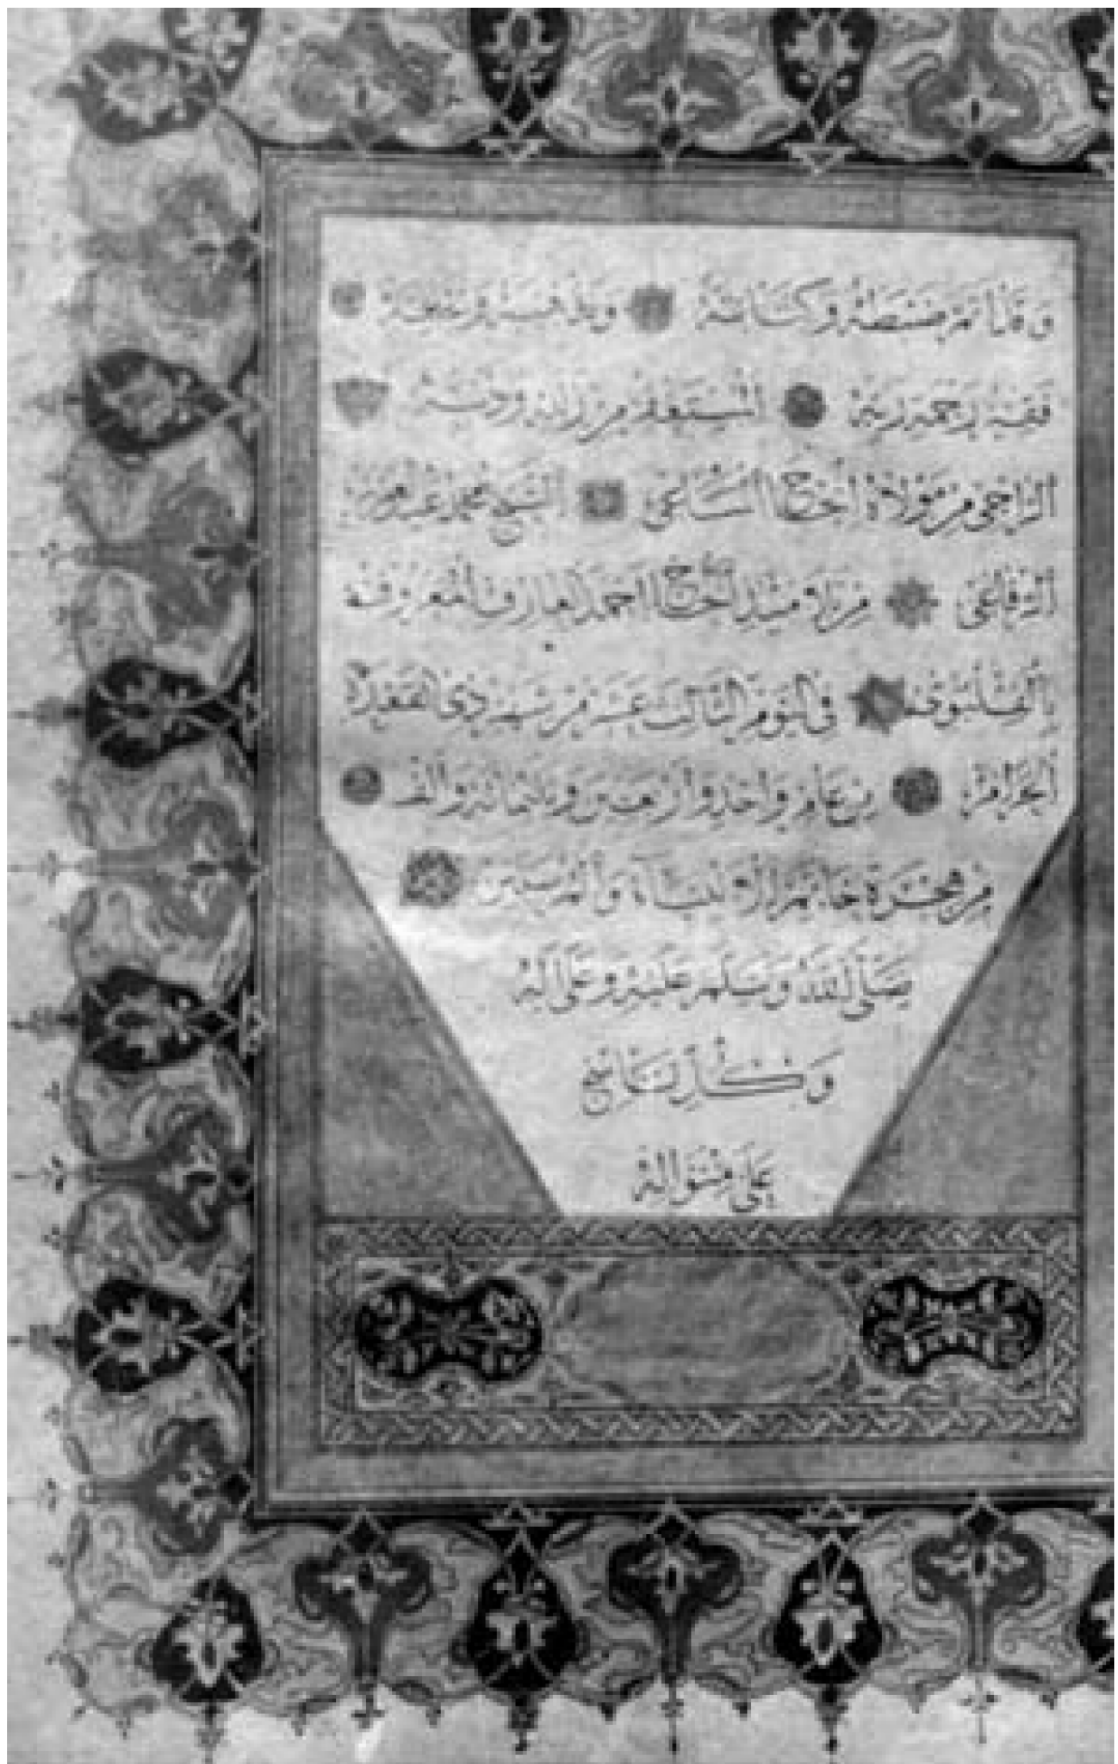 وَقَدْ تَمَّ وَكِتَابَتُهُ
فَقِيرُ رَحْمَةِ رَبِّهِ الْمُسْتَغْفِرُ مِنْ زَلَلِهِ وَذَنْبِهِ
الرَّاجِي مِنْ مَوْلَاهُ الشيخ محمد عبد العزيز
الرِّفَاعِي مِنْ تَلَامِيذِ الْحَاجِّ احمد العارف المعروف
بِالْفِلِبَوِي فِي الْيَوْمِ الثَّالِثَ عَشَرَ مِنْ شَهْرِ ذِي الْقَعْدَةِ
الْحَرَامِ مِنْ عَامِ وَاحِدٍ وَأَرْبَعِينَ وَثَلَاثِمِائَةٍ وَأَلْفٍ
مِنْ هِجْرَةِ خَاتَمِ الْأَنْبِيَاءِ وَالْمُرْسَلِينَ
صَلَّى اللَّهُ وَسَلَّمَ عَلَيْهِ وَعَلَى آلِهِ
وَكُلِّ نَاسِجٍ
عَلَى مِنْوَالِهِ